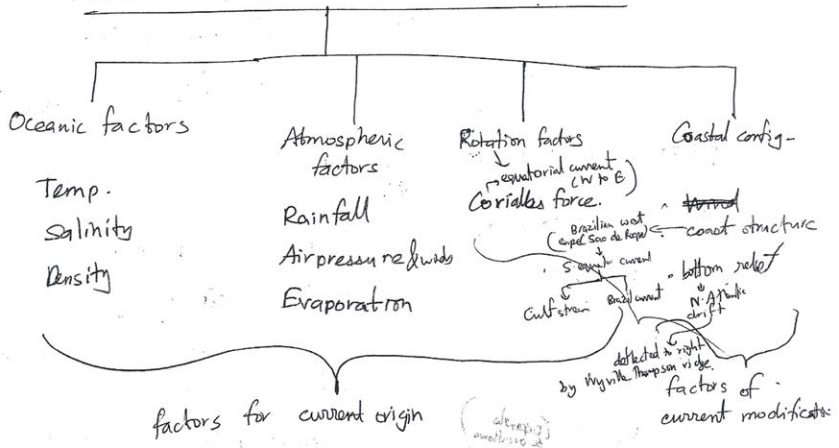 Oceanic factors
Temp.
Salinity
Density
Atmospheric
factors
Rainfall
Air pressure & winds
Evaporation
Rotation factors
equatorial current
(W to E)
Coriolles force.
Coastal config-
Brazilian west
coast structure
S equa current
Gulf stream
Brazil current
bottom relief
N. Atlantic
drift
deflected to right
by Wyville Thompson ridge.
factors for current origin
factors of
current modification